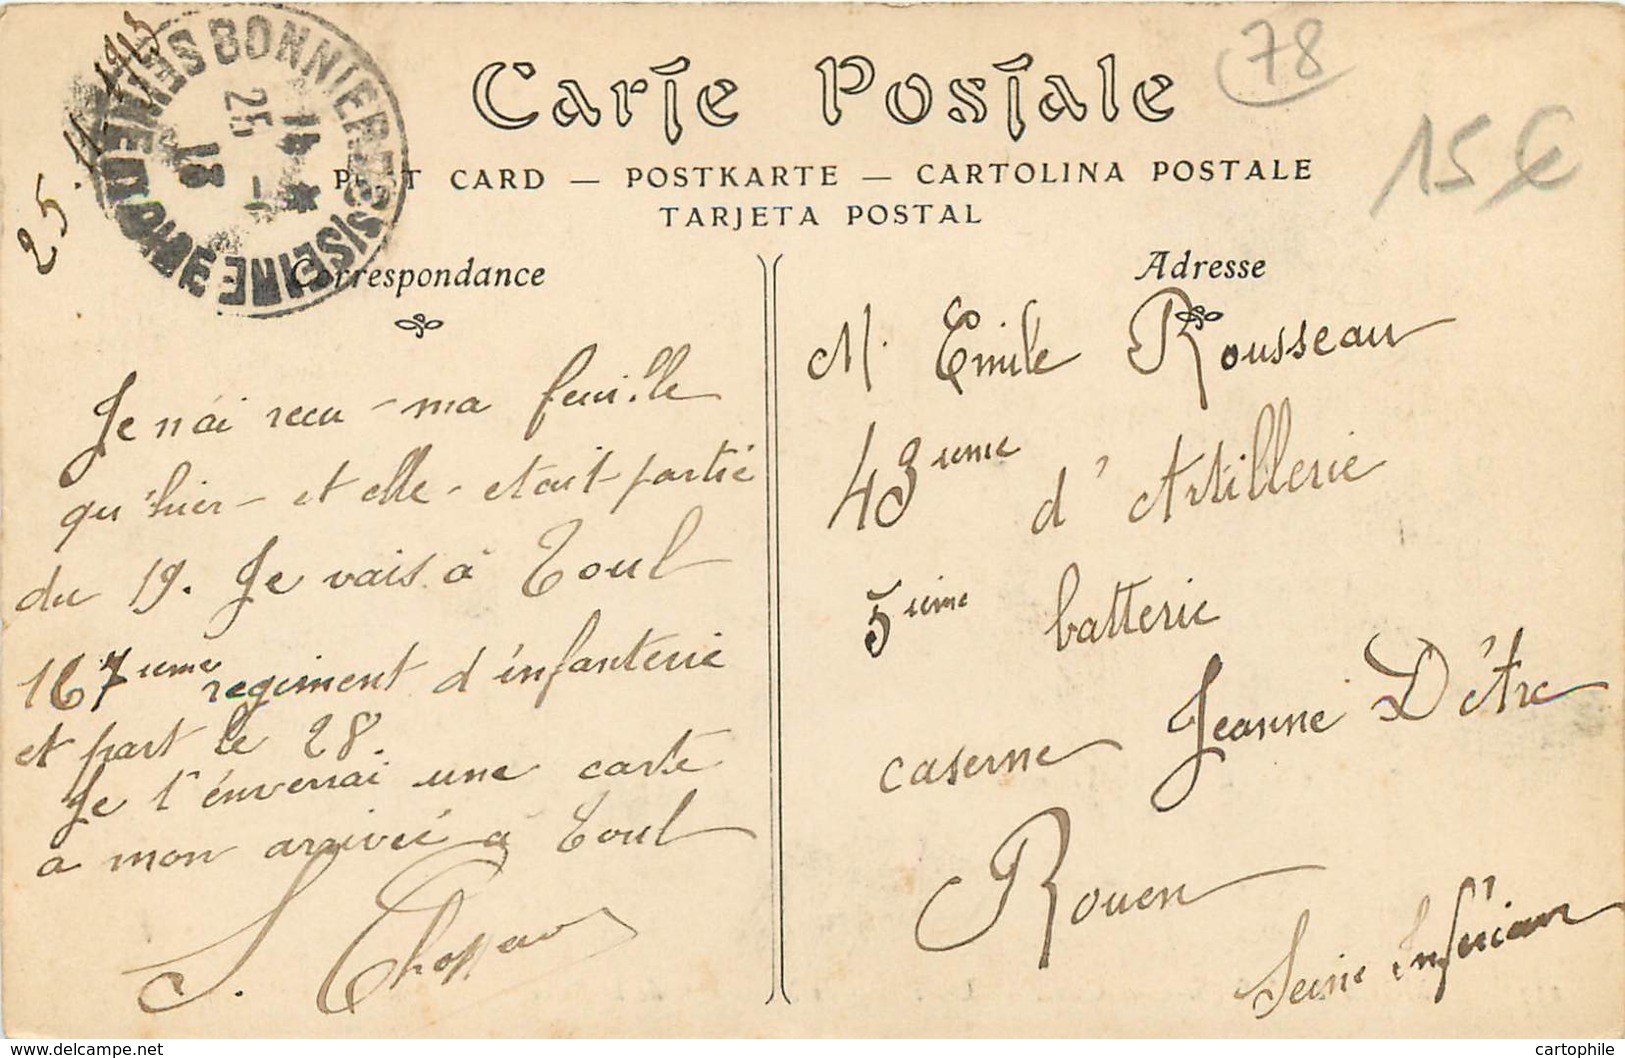 25.11.1913
BONNIERES S SEINE
SEINE-ET-OISE
14
25 - 11
13
78
15€
Carte Postale
POST CARD — POSTKARTE — CARTOLINA POSTALE
TARJETA POSTAL
Correspondance
Je n'ai recu ma feuille
qu'hier et elle etait partie
du 19. Je vais à Toul
167ieme regiment d'infanterie
et part le 28.
Je t'enverrai une carte
a mon arrivée à Toul
Adresse
M. Emile Rousseau
43ieme d'Artillerie
5ieme batterie
caserne Jeanne D'Arc
Rouen
Seine Inférieure
www.delcampe.net
cartophile